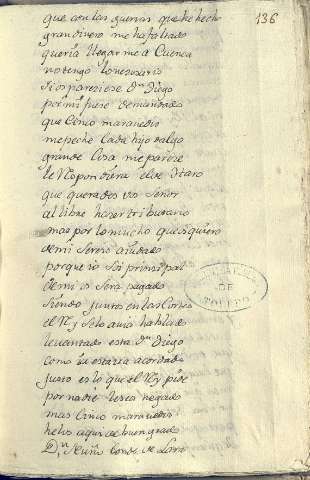 136
que con las guerras que he hecho
gran dinero me ha faltado
queria llegarme a Cuenca
no tengo lo nesesario
si os pareziese Dn Diego
por mi fuese demandado
que Cinco maravedis
me peche Cada hijo dalgo
grande Cosa me parese
le Respondiera el de Haro
que querades vos Señor
al libre haser tributario
mas por lo mucho que os quiero
de mi sereis aiudado
porque io soi prinsipal
de mi os sera pagado
siendo juntos en las Cortes
el Rey se lo avia hablado
levantado esta Dn Diego
como ia estava acordado
justo es lo que el Rey pide
por nadie le sea negado
mas Cinco maravedis
helos aqui de buen grado
Dn Nuño Conde de Lara
DE
TOLEDO